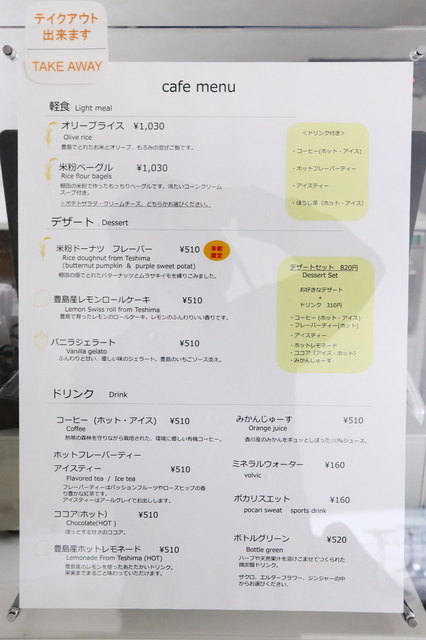 テイクアウト
出来ます
TAKE AWAY
cafe menu
軽食 Light meal
オリーブライス ¥1,030
Olive rice
豊島でとれたお米とオリーブ、もろみの混ぜご飯です。
米粉ベーグル ¥1,030
Rice flour bagels
棚田の米粉で作ったもっちりベーグルです。冷たいコーンクリーム
スープ付き。
※ポテトサラダ・クリームチーズ、どちらかお選びください。
<ドリンク付き>
・コーヒー(ホット・アイス)
・ホットフレーバーティー
・アイスティー
・ほうじ茶(ホット・アイス)
デザート Dessert
米粉ドーナツ フレーバー ¥510
季節
限定
Rice doughnut from Teshima
(butternut pumpkin & purple sweet potat)
棚田の畑でとれたバターナッツとムラサキイモを練りこみました。
豊島産レモンロールケーキ ¥510
Lemon Swiss roll from Teshima
豊島で育ったレモンのロールケーキ。レモンのふんわりいい香りです。
バニラジェラート ¥510
Vanilla gelato
ふんわりと甘い、優しい味のジェラート。豊島のいちごソース添え。
デザートセット 820円
Dessert Set
お好きなデザート
+
ドリンク 310円
・コーヒー(ホット・アイス)
・フレーバーティー(ホット)
・アイスティー
・ホットレモネード
・ココア(アイス・ホット)
・みかんじゅーす
ドリンク Drink
コーヒー (ホット・アイス) ¥510
Coffee
熱帯の森林を守りながら栽培された、環境に優しい有機コーヒー。
ホットフレーバーティー
アイスティー ¥510
Flavored tea / Ice tea
フレーバーティーはパッションフルーツやローズヒップの香
り豊かな紅茶です。
アイスティーはアールグレイでお出しします。
ココア(ホット) ¥510
Chocolate(HOT )
ほっとする甘さのココア。
豊島産ホットレモネード ¥510
Lemonade From Teshima (HOT)
豊島産のレモンを使ったあたたかいドリンク。
果実まるごと味わっていただけます。
みかんじゅーす ¥510
Orange juice
香川産のみかんをギュッとしぼった100%ジュース。
ミネラルウォーター ¥160
volvic
ポカリスエット ¥160
pocari sweat sports drink
ボトルグリーン ¥520
Bottle green
ハーブや天然果汁を溶けこませてつくられた
微炭酸ドリンク。
ザクロ、エルダーフラワー、ジンジャーの中
からお選びください。